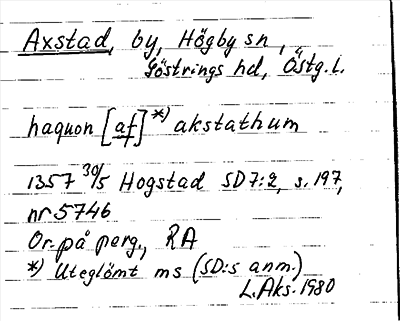 Axstad, by, Högby sn,
Göstrings hd, Östg. l.
haquon [af]*) akstathum
1357 30/5 Hogstad SD 7:2, s. 197,
nr 5746
Or. på perg., RA
*) Uteglömt ms (SD:s anm.)
L. Aks. 1980